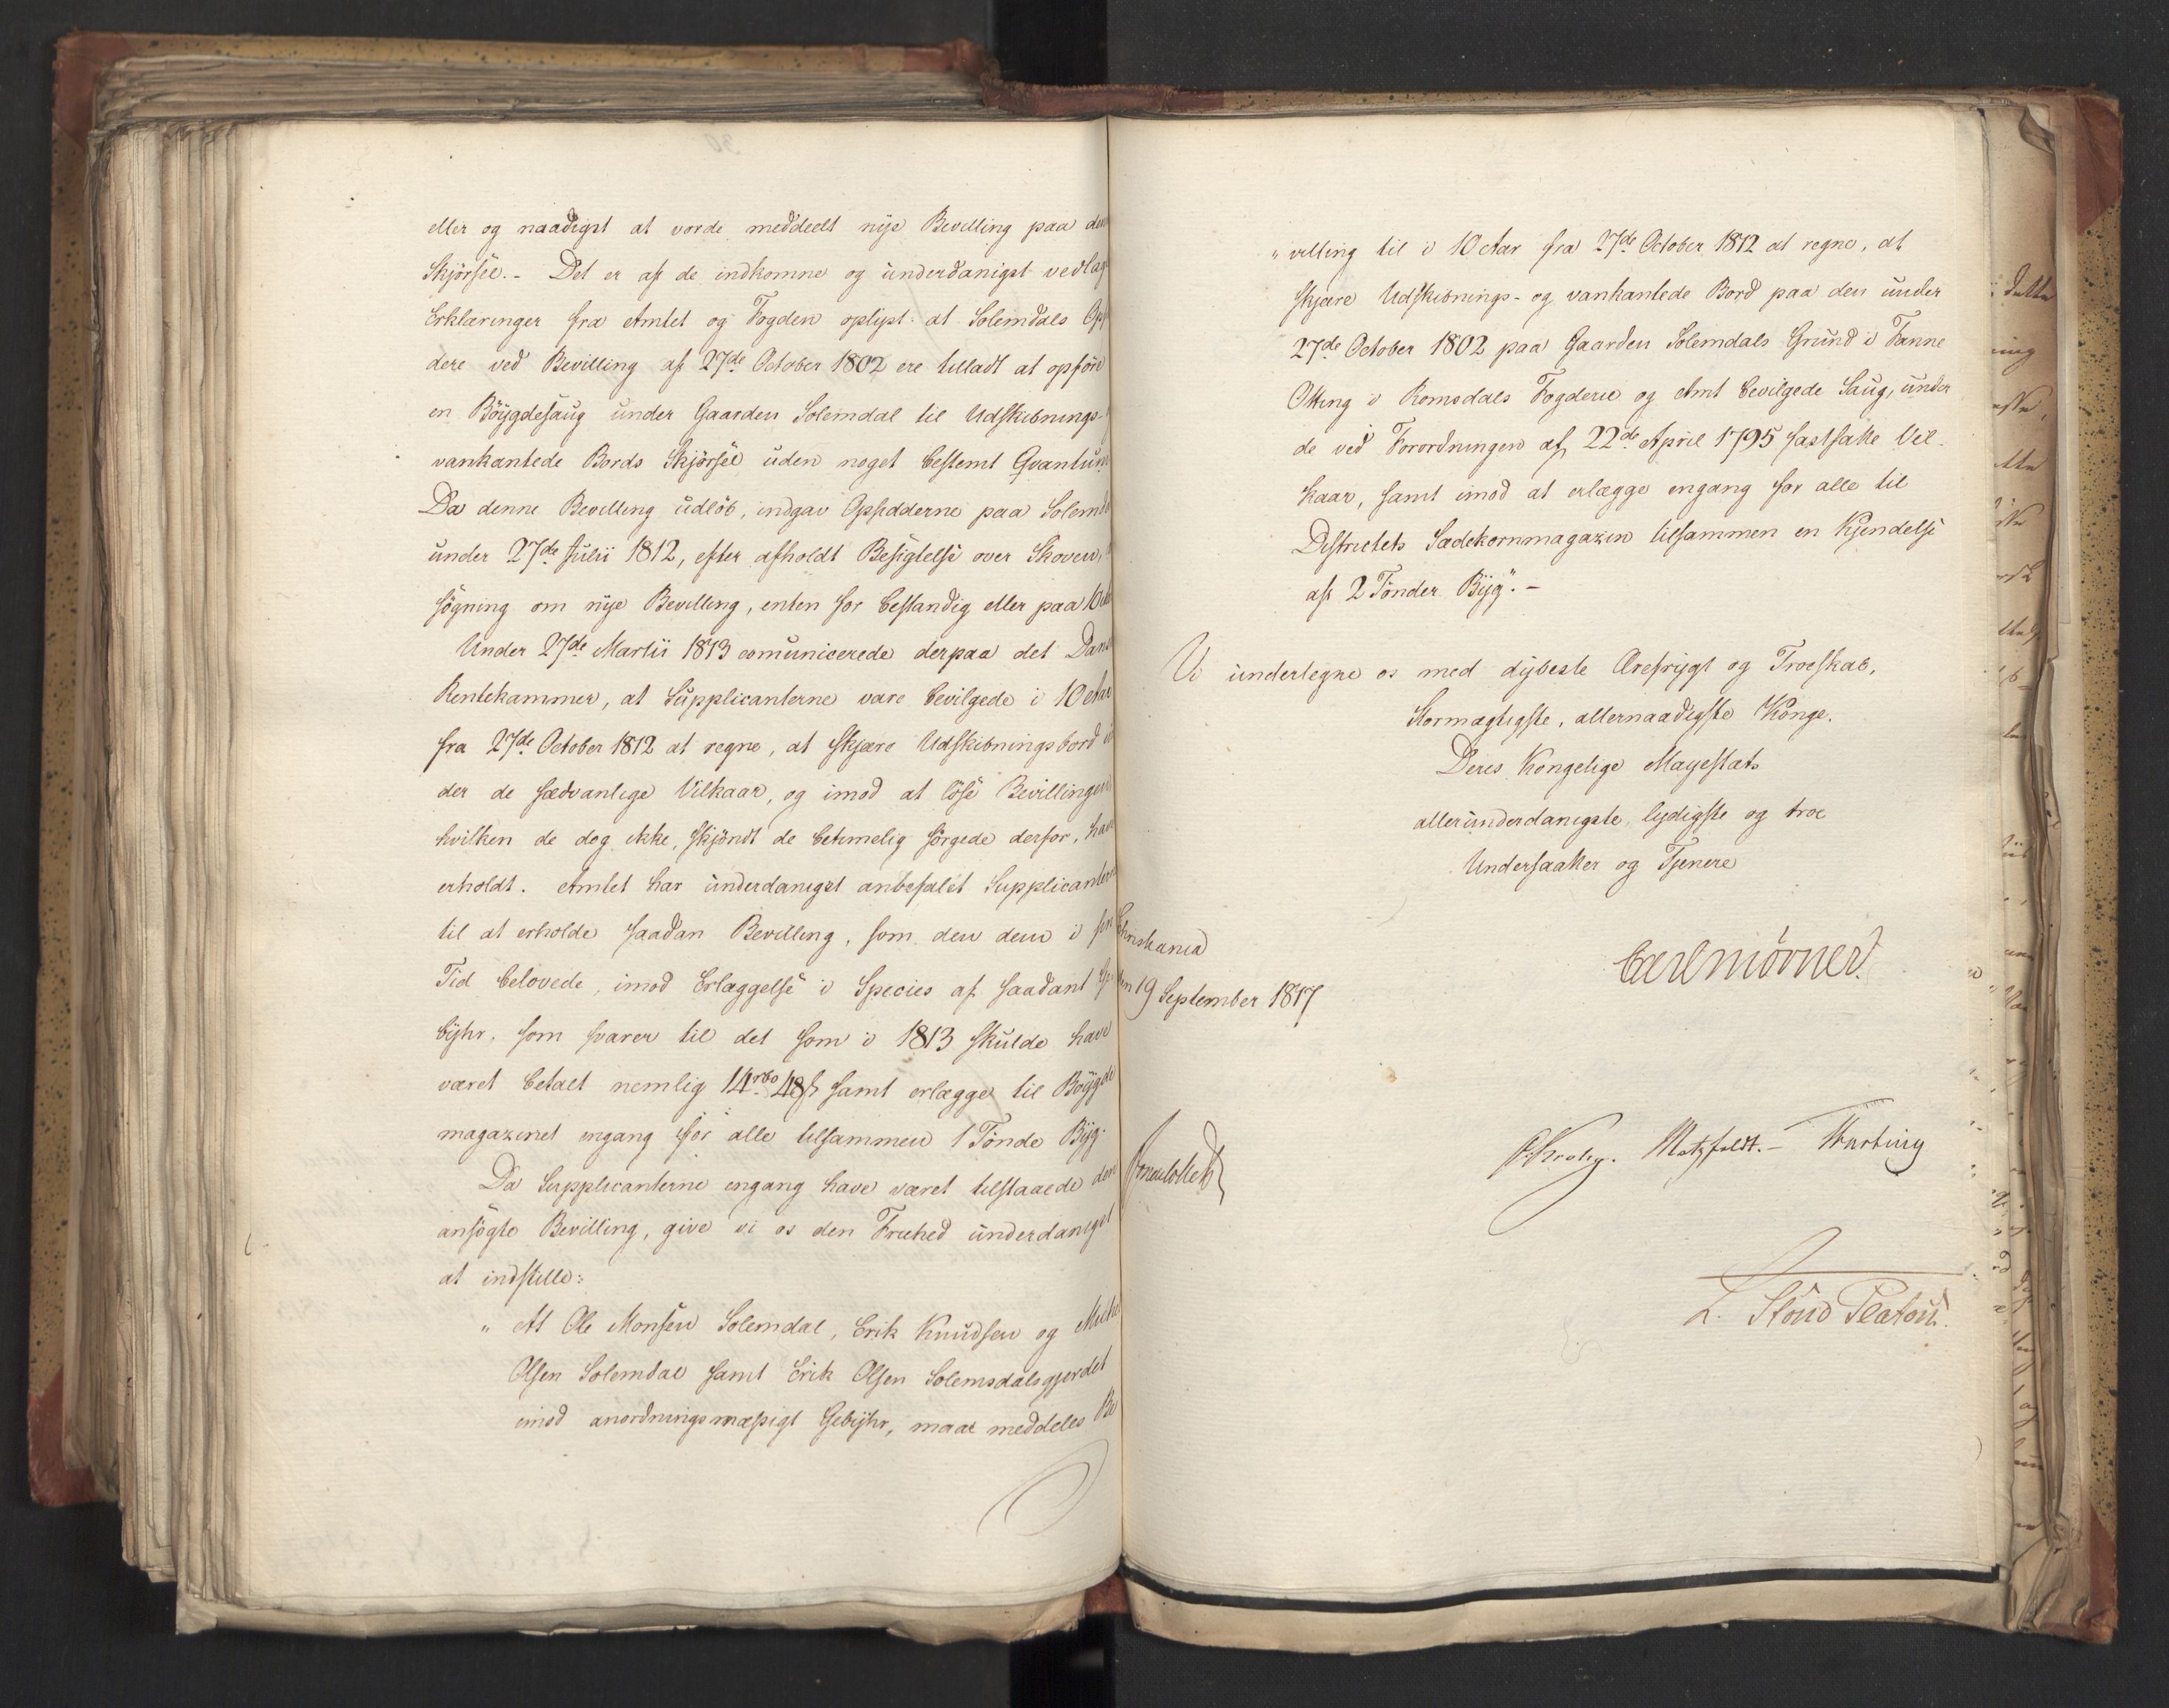 eller og naadigst at vorde meddeelt nye Bevilling paa den
Skjørsel. - Det er af de indkomne og underdanigst vedlag
Erklæringer fra Amtet og Fogden oplyst: at Solemdals Op
dere ved Bevilling af 27de October 1802 ere tilladt at opføre
en Böygdesaug under Gaarden Solemdal til Udskibnings-
vankantede Bords Skjørsel uden noget bestemt Qvantum
Da denne Bevilling udløb, indgav Opsidderne paa Solemd
under 27de Julii 1812, efter afholdt Besigtelse over Skoven,
søgning om nye Bevilling, enten for bestandig eller paa 10
Under 27de Martii 1813 comunicerede derpaa det Dans
Rentekammer, at Supplicanterne vare bevilgede i 10 Aar
fra 27de October 1812 at regne, at skjære Udskibningsbord
der de sædvanlige Vilkaar, og imod at løse Bevillingen
hvilken de dog ikke, skjøndt de betimelig sørgede derfor, have
erholdt. Amtet har underdanigst anbefalet Supplicantern
til at erholde saadan Bevilling, som den dem i
Tid belovede, imod Erlæggelse i Species af saadant
byhr, som svarer til det som i 1813 skulde have
været betalt nemlig 14 rbd 48 s samt erlægge til Böygde
magazinet engang for alle tilsammen 1 Tønde Byg.
Da Supplicanterne engang have været tilstaaede den
ansøgte Bevilling, give vi os den Friehed underdanigst
at indstille:
" At Ole Monsen Solemdal, Erik Knudsen og
Olsen Solemdal samt Erik Olsen Solemsdalsgjerdet
imod anordningsmæssigt Gebyhr, maae meddeles Be
" villing til i 10 Aar fra 27de October 1812 at regne, at
skjære Udskibnings- og vankantede Bord paa den under
27de October 1802 paa Gaarden Solemdals Grund i Fanne
Otting i Romsdals Fogderie og Amt bevilgede Saug, under
de ved Forordningen af 22de April 1795 fastsatte Vil-
kaar, samt imod at erlægge engang for alle til
Districtets Sædekornmagazin tilsammen en Kjendelse
af 2 Tønder Byg". -
Vi undertegne os med dybeste Ærefrygt og Troeskab,
Stormægtigste, allernaadigste Konge.
Deres Kongelige Mayestæts
allerunderdanigste, lydigste og troe
Undersaatter og Tjenere
Christiania
den 19 September 1817
Carl Mörner.
Sommerfeldt.
Krohg. Motzfeldt. -
L. Stoud Platou.